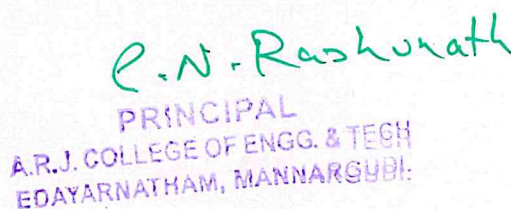 C.N. Raghunath
PRINCIPAL
A.R.J. COLLEGE OF ENGG. & TECH
EDAYARNATHAM, MANNARGUDI.